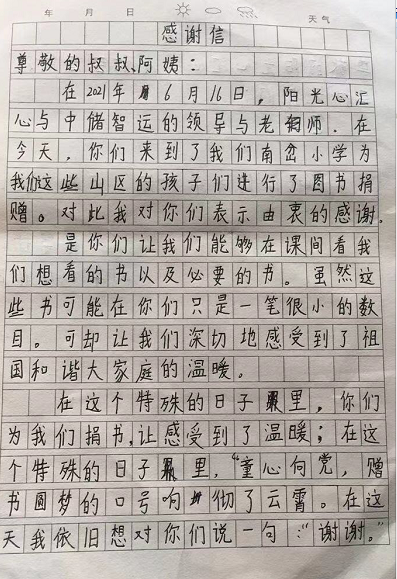 年 月 日 天气
感谢信
尊敬的叔叔、阿姨:
在2021年6月16日,阳光心汇
心与中储智运的领导与老师.在
今天,你们来到了我们南岔小学为
我们这些山区的孩子们进行了图书捐
赠。对此我对你们表示由衷的感谢.
是你们让我们能够在课间看我
们想看的书以及必要的书。虽然这
些书可能在你们只是一笔很小的数
目。可却让我们深切地感受到了祖
国和谐大家庭的温暖。
在这个特殊的日子里,你们
为我们捐书,让感受到了温暖;在这
个特殊的日子里,“童心向党,赠
书圆梦的口号响彻了云霄。在这
天我依旧想对你们说一句:“谢谢。”